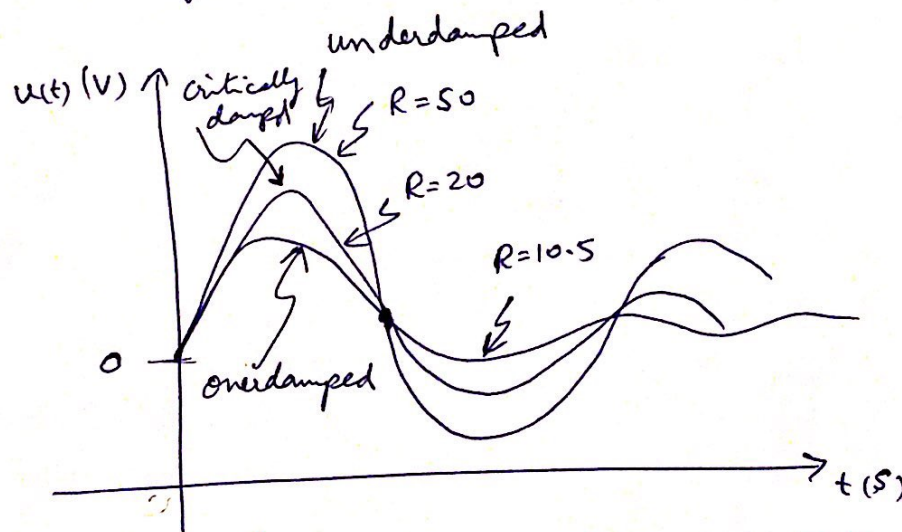 underdamped
v(t) (V)
critically
dampd
R=50
R=20
R=10.5
0
overdamped
t(s)